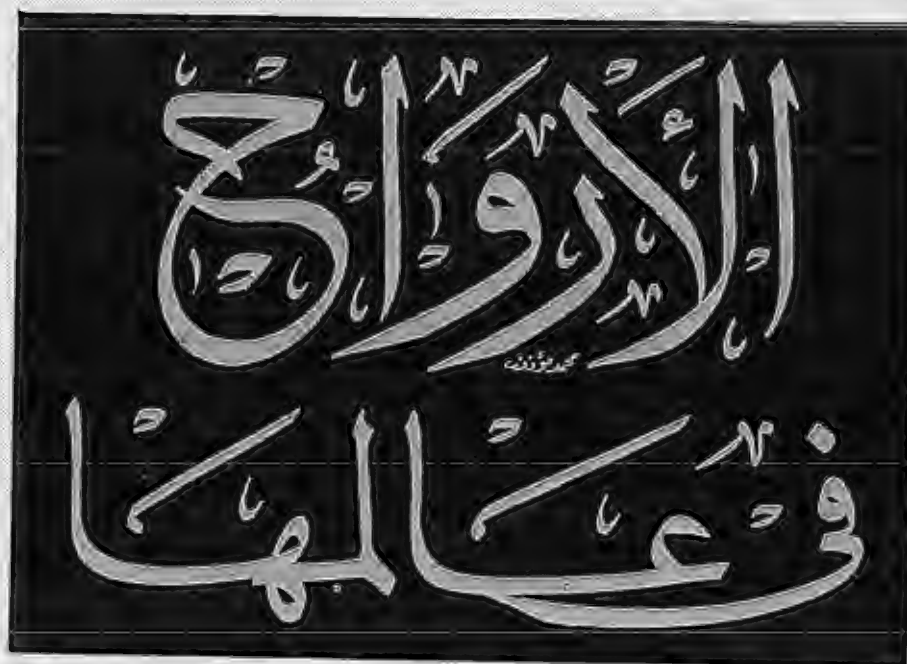 الأرواح
في عالمها